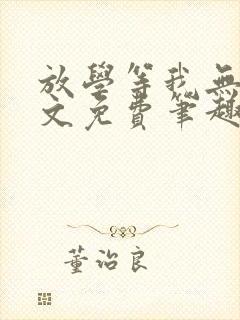 放學等我無
文免費筆趣
董治良